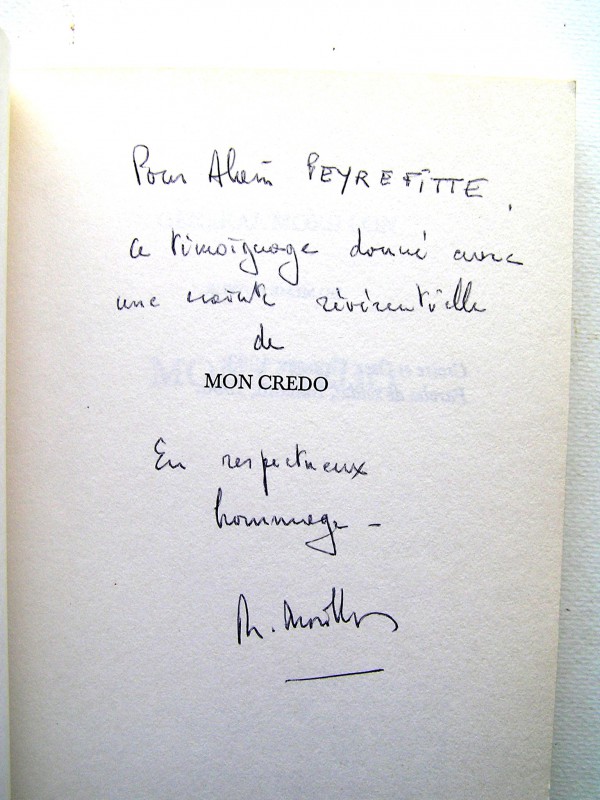 Pour Alain PEYREFITTE,
ce témoignage donné avec
une crainte révérentielle
de
MON CREDO
En respectueux
hommage -
Ph. Morillon